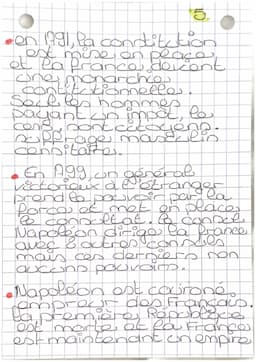 5
• en 1791, la constitution
est mise en place
et la France devient
une monarchie
constitutionnelle.
Seuls les hommes
payant un impôt, le
cens, sont citoyens.
suffrage masculin
censitaire.
• En 1799, un général
victorieux à l'étranger
prend le pouvoir par la
force et met en place
le consulat. Le consul
Napoléon dirige la France
avec 2 autres consuls
mais ces derniers n'ont
aucuns pouvoirs.
• Napoléon est couronné
empereur des Français.
La première République
est morte et la France
est maintenant un empire